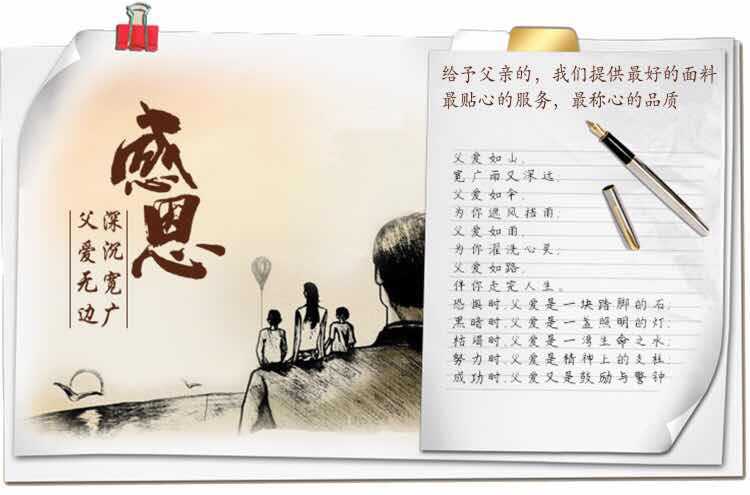 感恩
深沉宽广
父爱无边
给予父亲的，我们提供最好的面料
最贴心的服务，最称心的品质
父爱如山,
宽广而又深远,
父爱如伞,
为你遮风挡雨,
父爱如雨,
为你濯洗心灵,
父爱如路,
伴你走完人生。
恐惧时,父爱是一块踏脚的石;
黑暗时,父爱是一盏照明的灯;
枯竭时,父爱是一湾生命之水;
努力时,父爱是精神上的支柱;
成功时,父爱又是鼓励与警钟